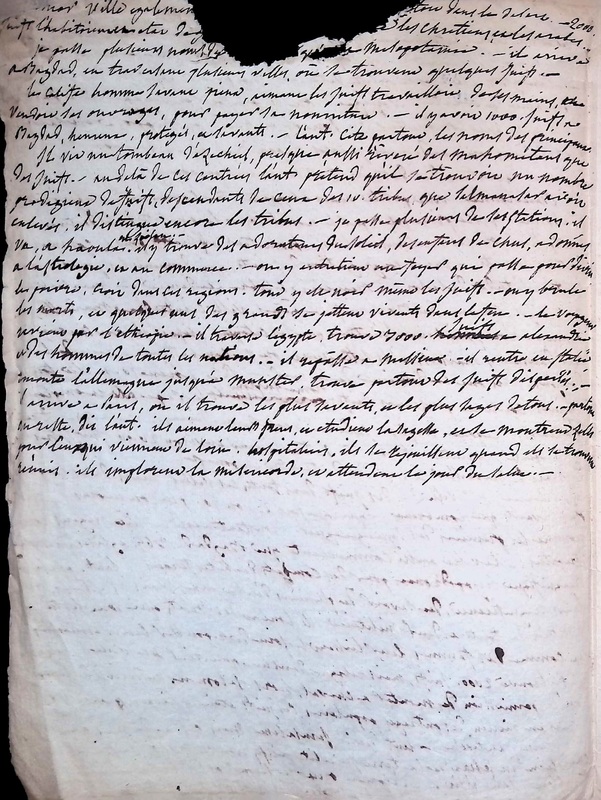 ville également dans le desert. — 2000.
juifs l'habitoient les chretiens, et les arabes. —
je passe plusieurs noms de mesopotamie. — il arrive
a Bagdad, en traversant plusieurs villes, où se trouvent quelques juifs. —
le calife homme savant aime les juifs travaille de ses mains,
vendoit ses ouvrages, pour payer sa nourriture. — il y avoit 1000 juifs, a
Bagdad, heureux, protégés, et savants. — l'aut. cite partout, les noms des principaux.
Il vit un tombeau d'ezechiel, presque aussi révéré des mahometans que
des juifs. — au delà de ces contrées l'aut pretend qu'il se trouvoit un nombre
prodigieux de juifs, descendants de ceux des 10. tribus, que salmanasar avoit
enlevés, il distingue encore les tribus. — je passe plusieurs de ses stations. il
va, a il y trouve des adorateurs du soleil, descendans de chus, adonnés
a l'astrologie, et au commerce. — on y entretient un foyer qui passe pour divin
le poivre, croit dans ces regions. tout y est noir même les juifs. — on y brule
les morts, et quelques uns des grands se jettent vivants dans le feu. — le voyageur
revient par l'ethiopie. — il traverse l'egypte, trouve 3000. juifs a alexandrie
et des hommes de toutes les nations. — il repasse a messine. — il rentre en italie
remonte l'allemagne jusqu'à munster, trouve partout des juifs dispersés. —
il arrive a paris, où il trouve les plus savants, et les plus sages de tous. — partout
au reste, dit l'aut. ils aiment leurs freres, et etudient la sagesse, et se montrent zelés
pour ceux qui viennent de loin. hospitaliers, ils se rejouissent quand ils se trouvent
reunis. ils implorent la misericorde, et attendent le jour du salut. —